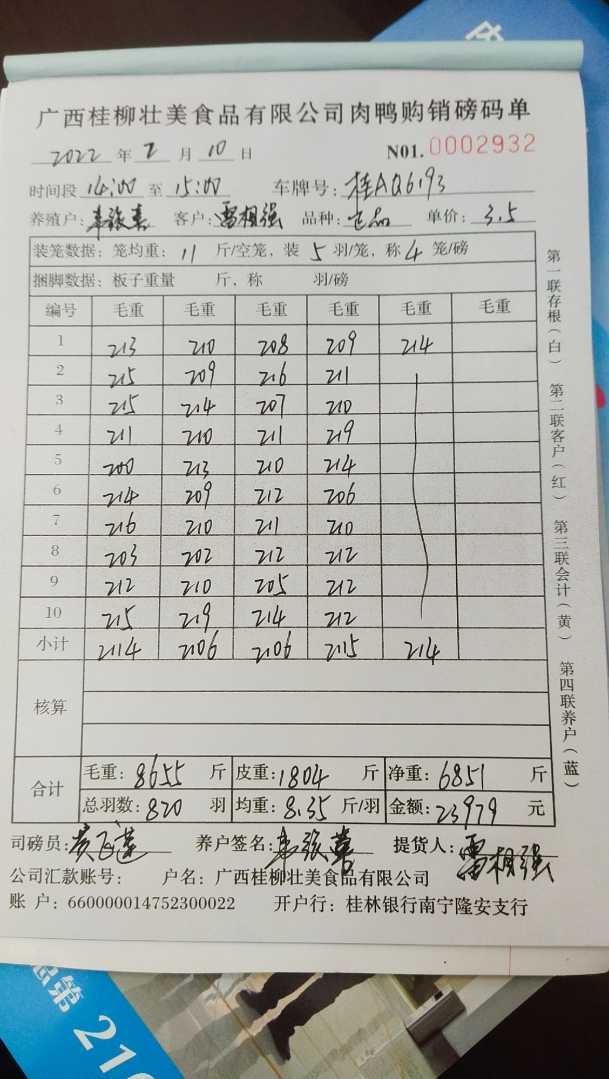 广西桂柳壮美食品有限公司肉鸭购销磅码单
2022 年 2 月 10 日 N01. 0002932
时间段 14:00 至 15:00 车牌号: 桂AQ6193
养殖户: 客户: 雷相强 品种: 正品 单价: 3.5
装笼数据: 笼均重: 11 斤/空笼, 装 5 羽/笼, 称 4 笼/磅
捆脚数据: 板子重量 斤, 称 羽/磅
编号 毛重 毛重 毛重 毛重 毛重 毛重
1 213 210 208 209 214
2 215 209 216 211
3 215 214 207 210
4 211 210 211 219
5 200 213 210 214
6 214 209 212 206
7 216 210 211 210
8 203 202 212 212
9 212 210 205 212
10 215 219 214 212
小计 2114 2106 2106 2115 214
核算
合计 毛重: 8655 斤 皮重: 1804 斤 净重: 6851 斤
总羽数: 820 羽 均重: 8.35 斤/羽 金额: 23979 元
司磅员: 养户签名: 提货人: 雷相强
公司汇款账号: 户名: 广西桂柳壮美食品有限公司
账 户: 660000014752300022 开户行: 桂林银行南宁隆安支行
第一联存根(白) 第二联客户(红) 第三联会计(黄) 第四联养户(蓝)
总第 216